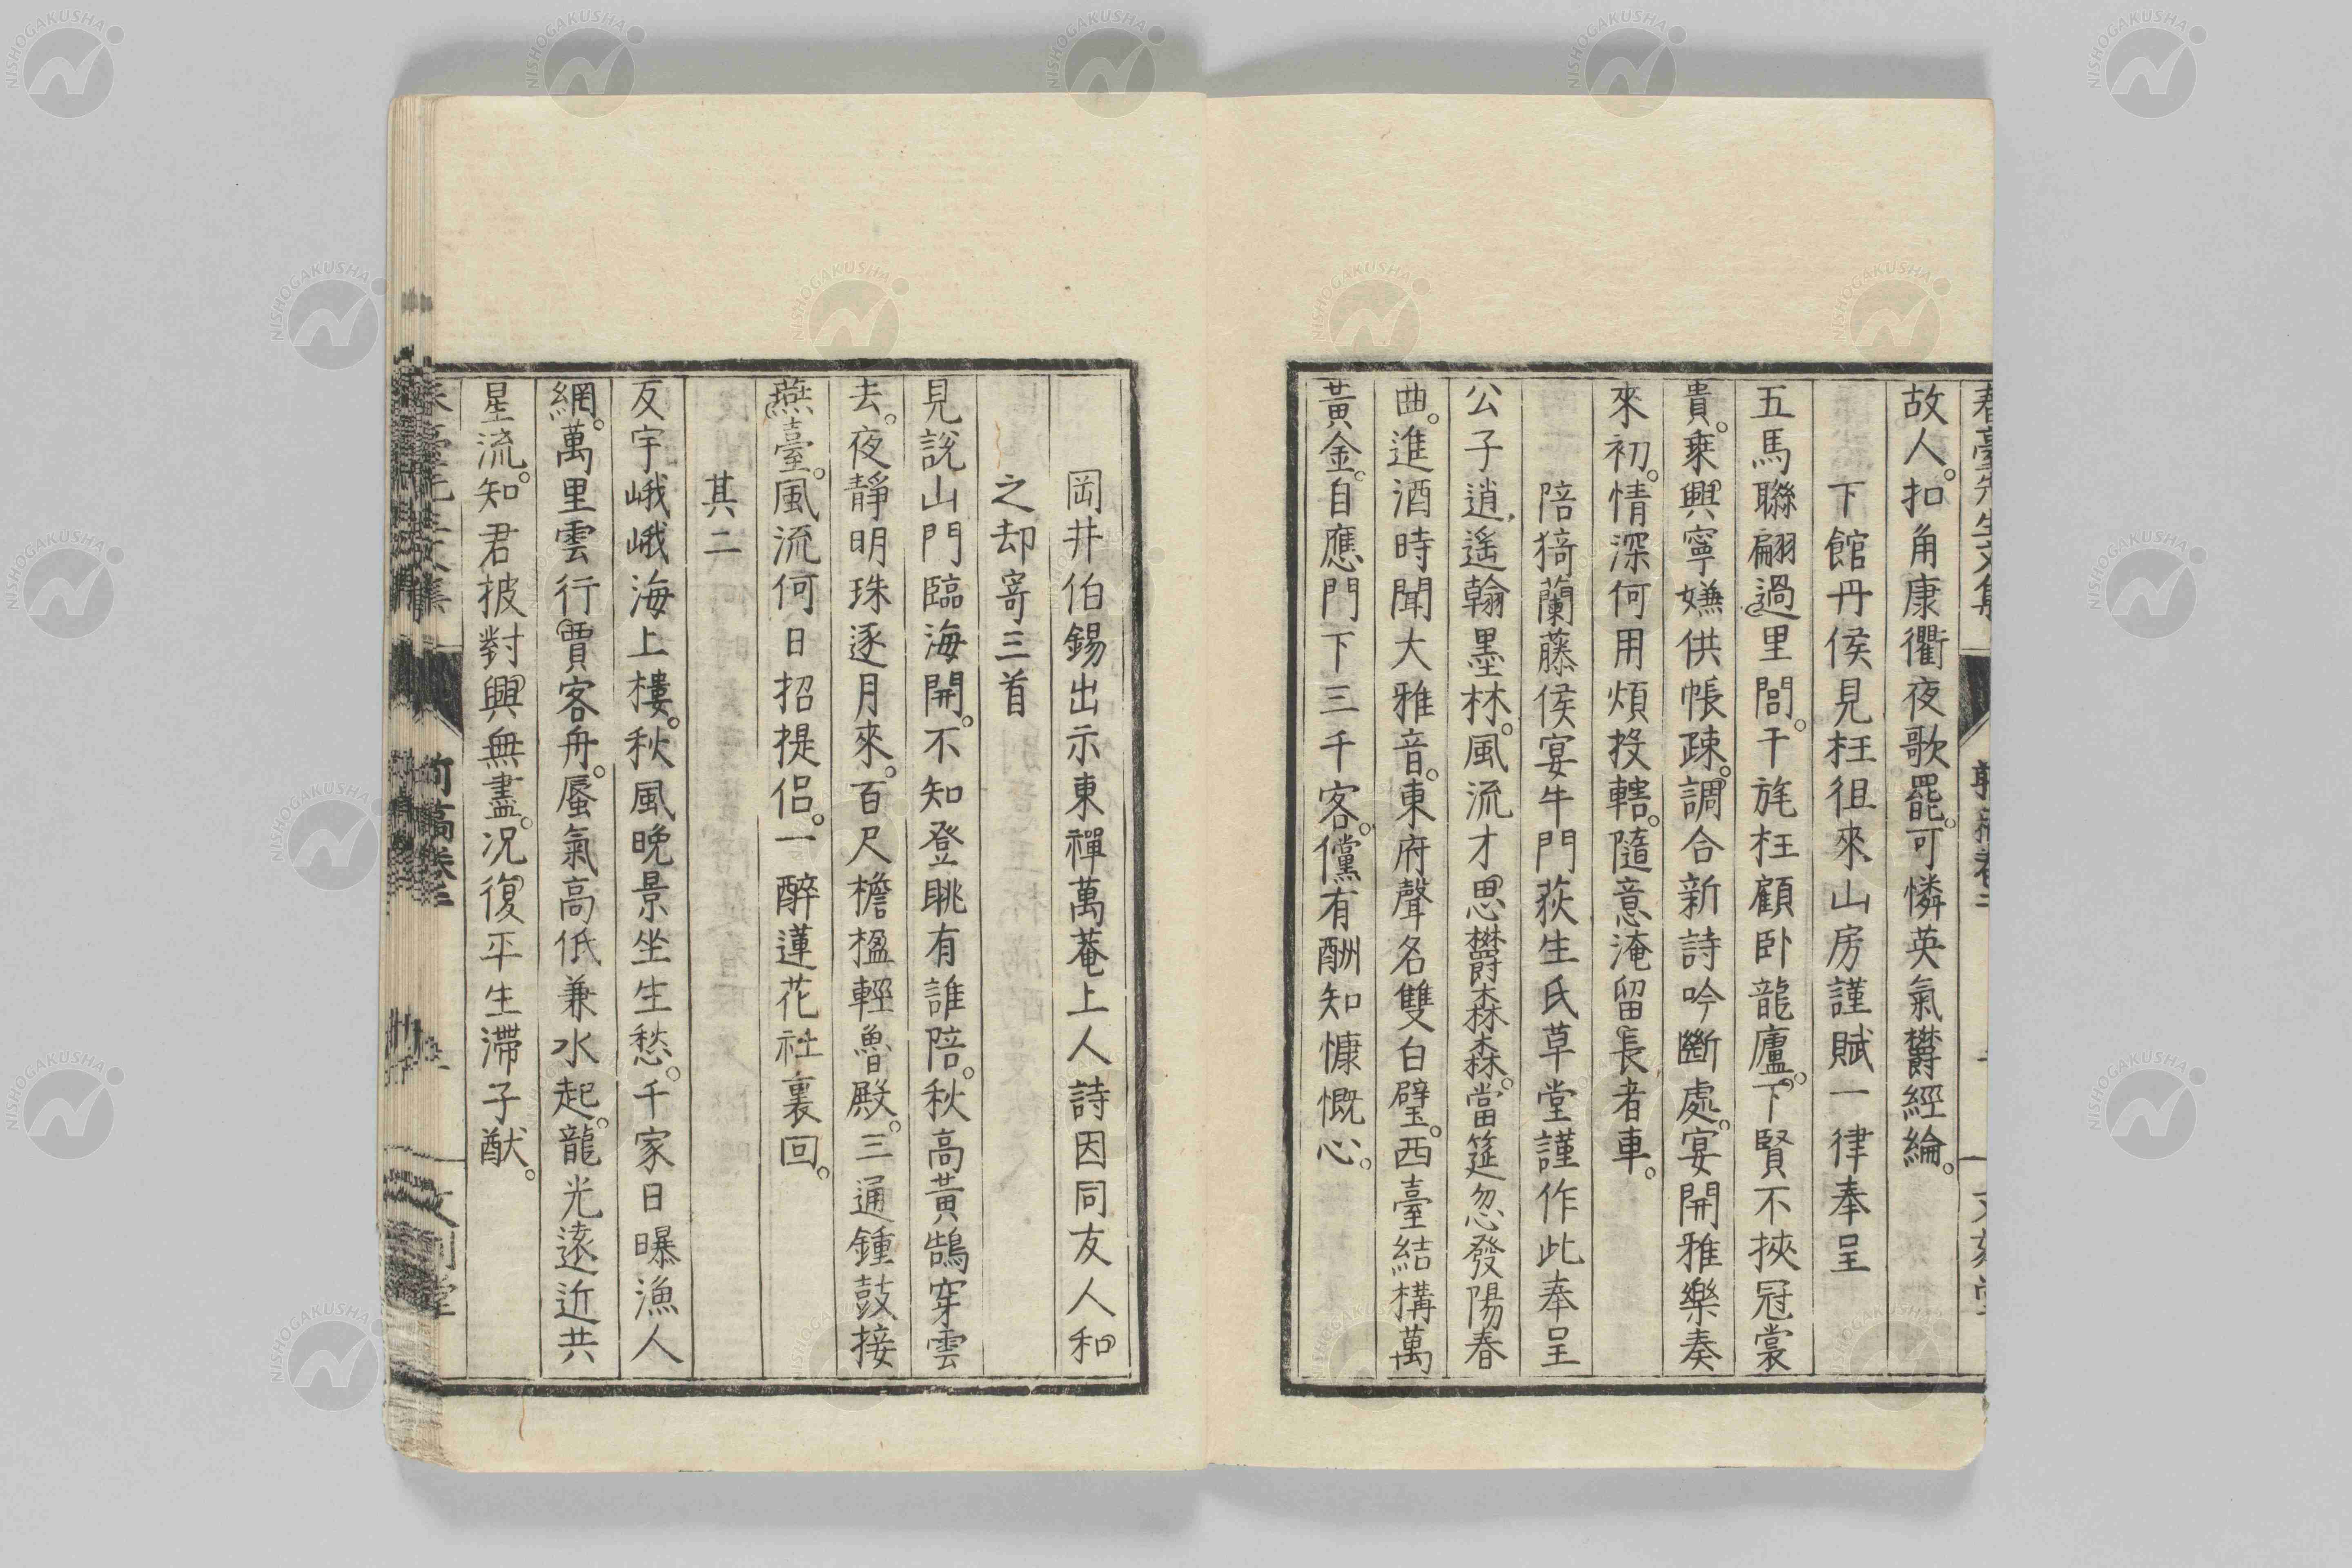 故人。扣角康衢夜歌罷。可憐英氣欝經綸。
下館丹侯見枉徂來山房謹賦一律奉呈
五馬聯翩過里閭。干旄枉顧臥龍廬。下賢不挾冠裳
貴。乗興寧嫌供帳疎。調合新詩吟斷處。宴開雅樂奏
來初。情深何用煩投轄。隨意淹留長者車。
陪猗蘭藤侯宴牛門荻生氏草堂謹作此奉呈
公子逍遙翰墨林。風流才思欝森森。當筵忽發陽春
曲。進酒時聞大雅音。東府聲名雙白璧。西臺結構萬
黃金。自應門下三千客。儻有酬知慷慨心。
岡井伯錫出示東禪萬菴上人詩因同友人和
之却寄三首
見說山門臨海開。不知登眺有誰陪。秋高黃鵠穿雲
去。夜靜明珠逐月來。百尺檐楹輕魯殿。三通鍾鼓接
燕臺。風流何日招提侶。一醉蓮花社裏回。
其二
反宇峨峨海上樓。秋風晚景坐生愁。千家日曝漁人
網。萬里雲行賈客舟。蜃氣高低兼水起。龍光遠近共
星流。知君披對興無盡。況復平生滯子猷。
NISHOGAKUSHA